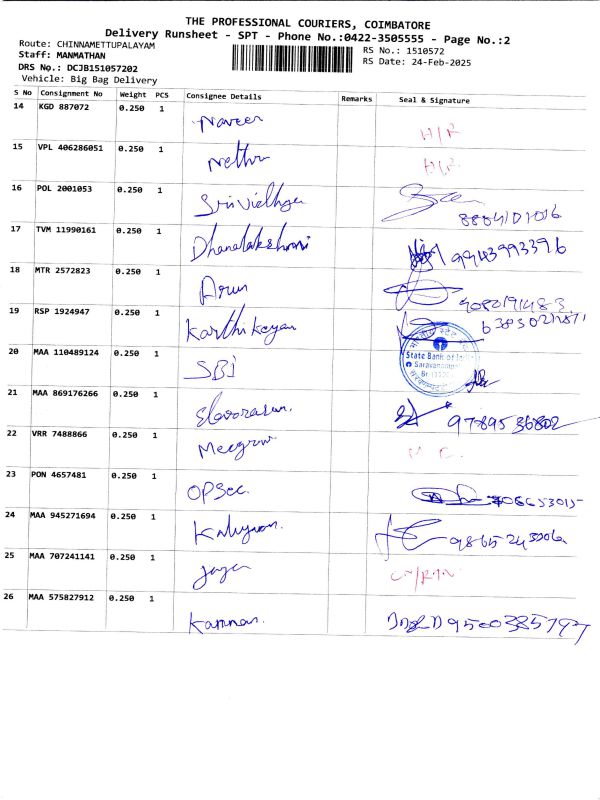 THE PROFESSIONAL COURIERS, COIMBATORE
Delivery Runsheet - SPT - Phone No.:0422-3505555 - Page No.:2
Route: CHINNAMETTUPALAYAM
RS No.: 1510572
Staff: MANMATHAN
RS Date: 24-Feb-2025
DRS No.: DCJB151057202
Vehicle: Big Bag Delivery
S No Consignment No Weight PCS Consignee Details Remarks Seal & Signature
14 KGD 887072 0.250 1 Naveen H/R
15 VPL 406286051 0.250 1 Nethra H/R
16 POL 2001053 0.250 1 Srividhya 8884101016
17 TVM 11990161 0.250 1 Dhanalakshmi 9943993396
18 MTR 2572823 0.250 1 Arun
19 RSP 1924947 0.250 1 Karthikeyan
20 MAA 110489124 0.250 1 SBI State Bank of India
21 MAA 869176266 0.250 1 9789536802
22 VRR 7488866 0.250 1
23 PON 4657481 0.250 1 OPSec.
24 MAA 945271694 0.250 1 Kalyan.
25 MAA 707241141 0.250 1
26 MAA 575827912 0.250 1 Kannan.